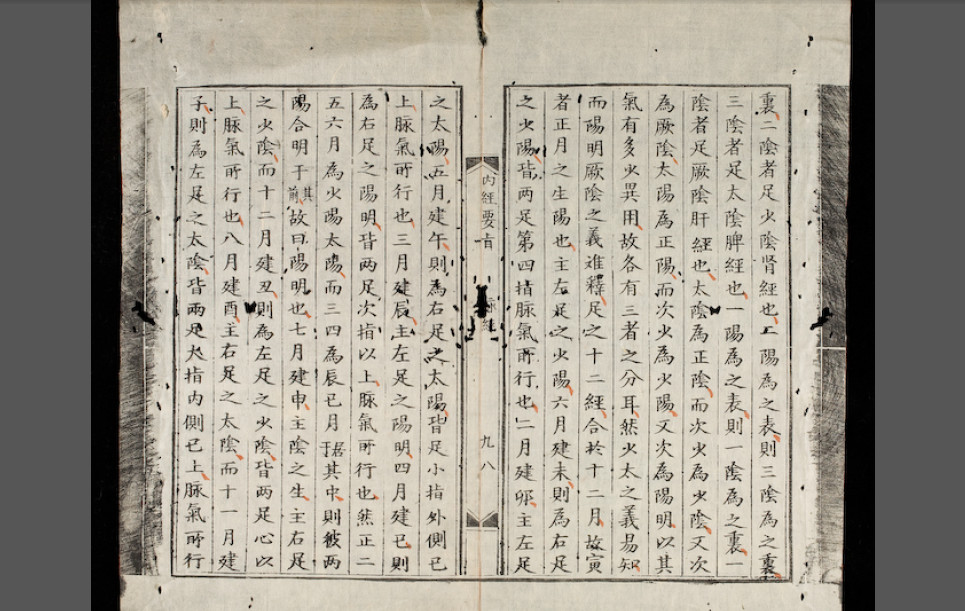 裏二陰者足少陰腎經也二陽為之表則三陰為之裏
三陰者足太陰脾經也一陽為之表則一陰為之裏一
陰者足厥陰肝經也太陰為正陰而次少為少陰又次
為厥陰太陽為正陽而次少為少陽又次為陽明以其
氣有多少異用故各有三者之分耳然少太之義易知
而陽明厥陰之義难釋足之十二經合於十二月故寅
者正月之生陽也主左足之少陽六月建未則為右足
之少陽皆两足第四指脉氣所行也二月建卯主左足
内經要旨
脉經
九八
之太陽五月建午則為右足之太陽皆足小指外側已
上脉氣所行也三月建辰主左足之陽明四月建巳則
為右足之陽明皆两足次指以上脉氣所行也然正二
五六月為少陽太陽而三四為辰巳月居于其中則彼两
陽合明于其前故曰陽明也七月建申主陰之生主右足
之少陰而十二月建丑則為左足之少陰皆两足心以
上脉氣所行也八月建酉主右足之太陰而十一月建
子則為左足之太陰皆两足大指内側已上脉氣所行